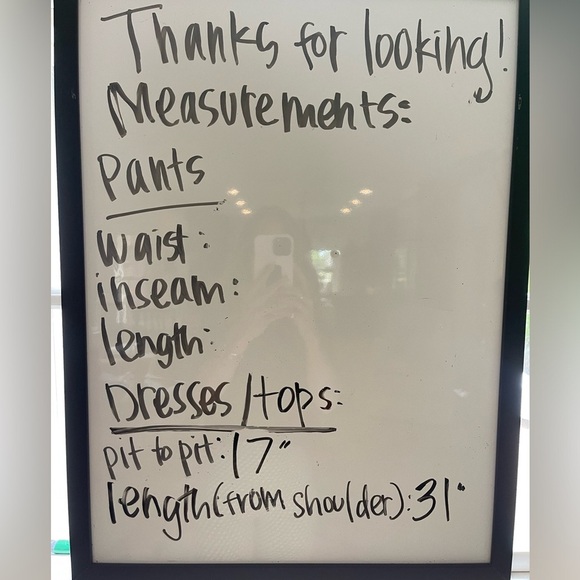 Thanks for looking!
Measurements:
Pants
waist:
inseam:
length:
Dresses/tops:
pit to pit: 17"
length(from shoulder): 31"